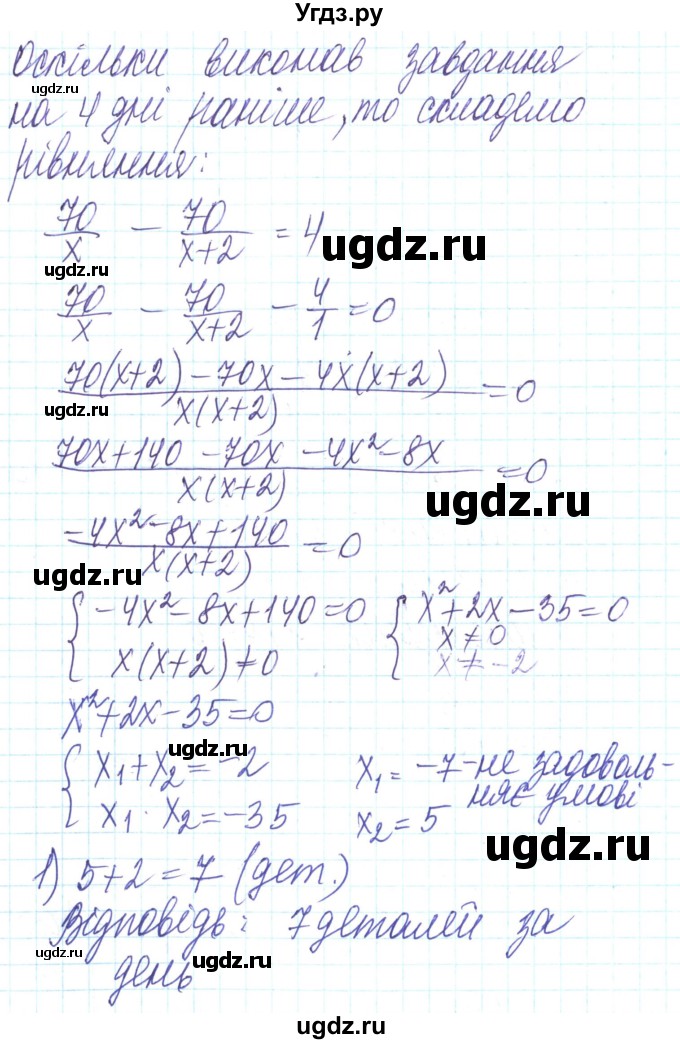 Угдз.ру
Оскільки виконав завдання
ugdz.ru
на 4 дні раніше, то складемо
рівняння:
70/x − 70/(x+2) = 4
ugdz.ru
ugdz.ru
ugdz.ru
70/x − 70/(x+2) − 4/1 = 0
ugdz.ru
(70(x+2) − 70x − 4x(x+2))/(x(x+2)) = 0
ugdz.ru
(70x+140 − 70x − 4x² − 8x)/(x(x+2)) = 0
ugdz.ru
(−4x² − 8x + 140)/(x(x+2)) = 0
ugdz.ru
{ −4x² − 8x + 140 = 0
x(x+2) ≠ 0
{ x² + 2x − 35 = 0
x ≠ 0
x ≠ −2
x² + 2x − 35 = 0
ugdz.ru
{ x₁ + x₂ = −2
x₁ · x₂ = −35
x₁ = −7 - не задоволь-
няє умові
x₂ = 5
ugdz.ru
ugdz.ru
1) 5 + 2 = 7 (дет.)
Відповідь: 7 деталей за
ugdz.ru
день
ugdz.ru
ugdz.ru